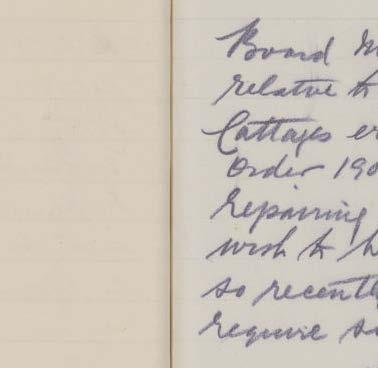 Board
relative to
Cottages er
Order 190
repairing
wish to h
so recently
require su